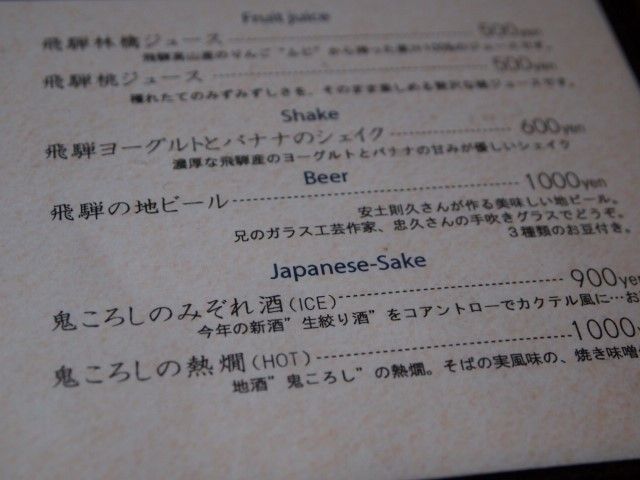 Fruit juice
飛騨林檎ジュース 500yen
飛騨高山産のりんご"ふじ"から搾った果汁100%のジュースです。
飛騨桃ジュース 500yen
穫れたてのみずみずしさを、そのまま楽しめる贅沢な桃ジュースです。
Shake
飛騨ヨーグルトとバナナのシェイク 600yen
濃厚な飛騨産のヨーグルトとバナナの甘みが優しいシェイク
Beer
飛騨の地ビール 1000yen
安土則久さんが作る美味しい地ビール。
兄のガラス工芸作家、忠久さんの手吹きグラスでどうぞ。
3種類のお豆付き。
Japanese-Sake
鬼ころしのみぞれ酒(ICE) 900yen
今年の新酒"生絞り酒"をコアントローでカクテル風に…お
鬼ころしの熱燗(HOT) 1000
地酒"鬼ころし"の熱燗。そばの実風味の、焼き味噌